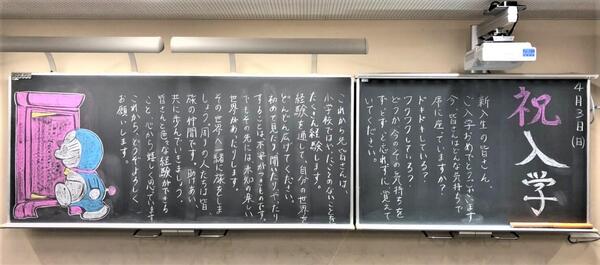 4月3日(日)
祝
入学
新入生の皆さん、
ご入学おめでとうございます。
今、皆さんはどんな気持ちで
席に座っていますか？
ドキドキしている？
ワクワクしている？
どうか今のその気持ちを
ずっとずっと忘れずに覚えて
いてください。
これから先、皆さんは、
小学校ではやったことのないことを
たくさん経験します。
経験を通して、自分の世界を
どんどん広げてください。
初めて見たり、聞いたり、やったり
することは、不安がつきものです。
でもその先には未知の楽しい
世界があったりします。
その世界へ一緒に旅をしま
しょう。周りの人たちは皆、
旅の仲間です。助けあい、
共に歩んでいきましょう。
皆さんと色々な経験ができる
こと、心から嬉しく思っています。
これから、どうぞよろしく
お願いします。